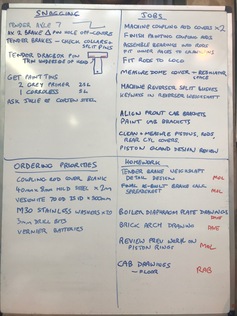 SNAGGING
TENDER AXLE 7
BRAKE PIN HOLE OFF-CENTRE
TENDER BRAKES - CHECK COLLARS +
SPLIT PINS
TENDER DRAGBOX PIN
TRIM UNDERSIDE OF HEAD
GET PAINT TINS
2 GREY PRIMER 5L
1 CORROLESS 5L
ASK JULIE OF CORTEN STEEL
JOBS
MACHINE COUPLING ROD COVERS x2
FINISH PAINTING COUPLING RODS
ASSEMBLE BEARINGS INTO RODS
FIT INNER RODS TO
FIT RODS TO LOCO
MEASURE DOME COVER - REGULATOR
SPACE
MACHINE REVERSER SPLIT BUSHES
KEYWAYS IN REVERSER WEIGHSHAFT
ALIGN FRONT CAB BRACKETS
PAINT CAB BRACKETS
CLEAN + MEASURE PISTONS, RODS,
REAR CYL COVERS.
PISTON GLAND DESIGN REVIEW
ORDERING PRIORITIES
COUPLING ROD COVER BLANK
40mm x 3mm MILD STEEL x 2m
VESCONITE 70 OD 15 ID x 300mm
M30 STAINLESS WASHERS x 20
3mm DRILL BITS
VERNIER BATTERIES
HOMEWORK
TENDER BRAKE WEIGHSHAFT
DETAIL DESIGN
MAL
FINAL AS-BUILT BRAKE CALC
SPREADSHEET
MAL
BOILER DIAPHRAGM PLATE DRAWINGS
DAVE
BRICK ARCH DRAWING
DAVE
REVIEW PREV WORK ON
PISTON RINGS
MAL
CAB DRAWINGS
- FLOOR
RAB